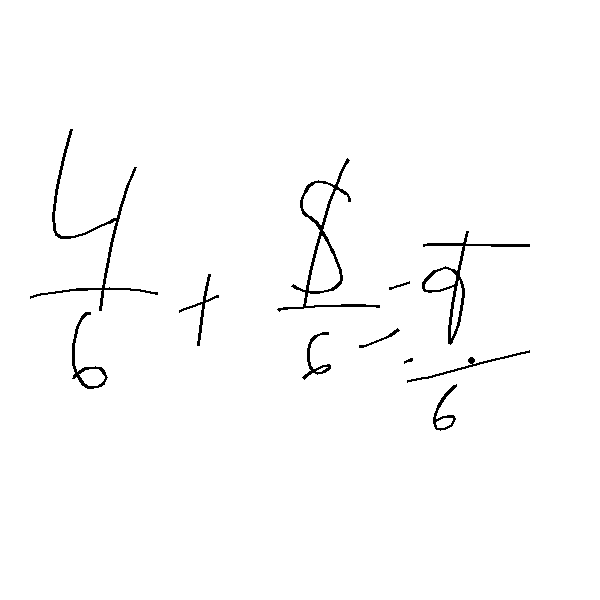 4/6 + 5/6 = 9/6